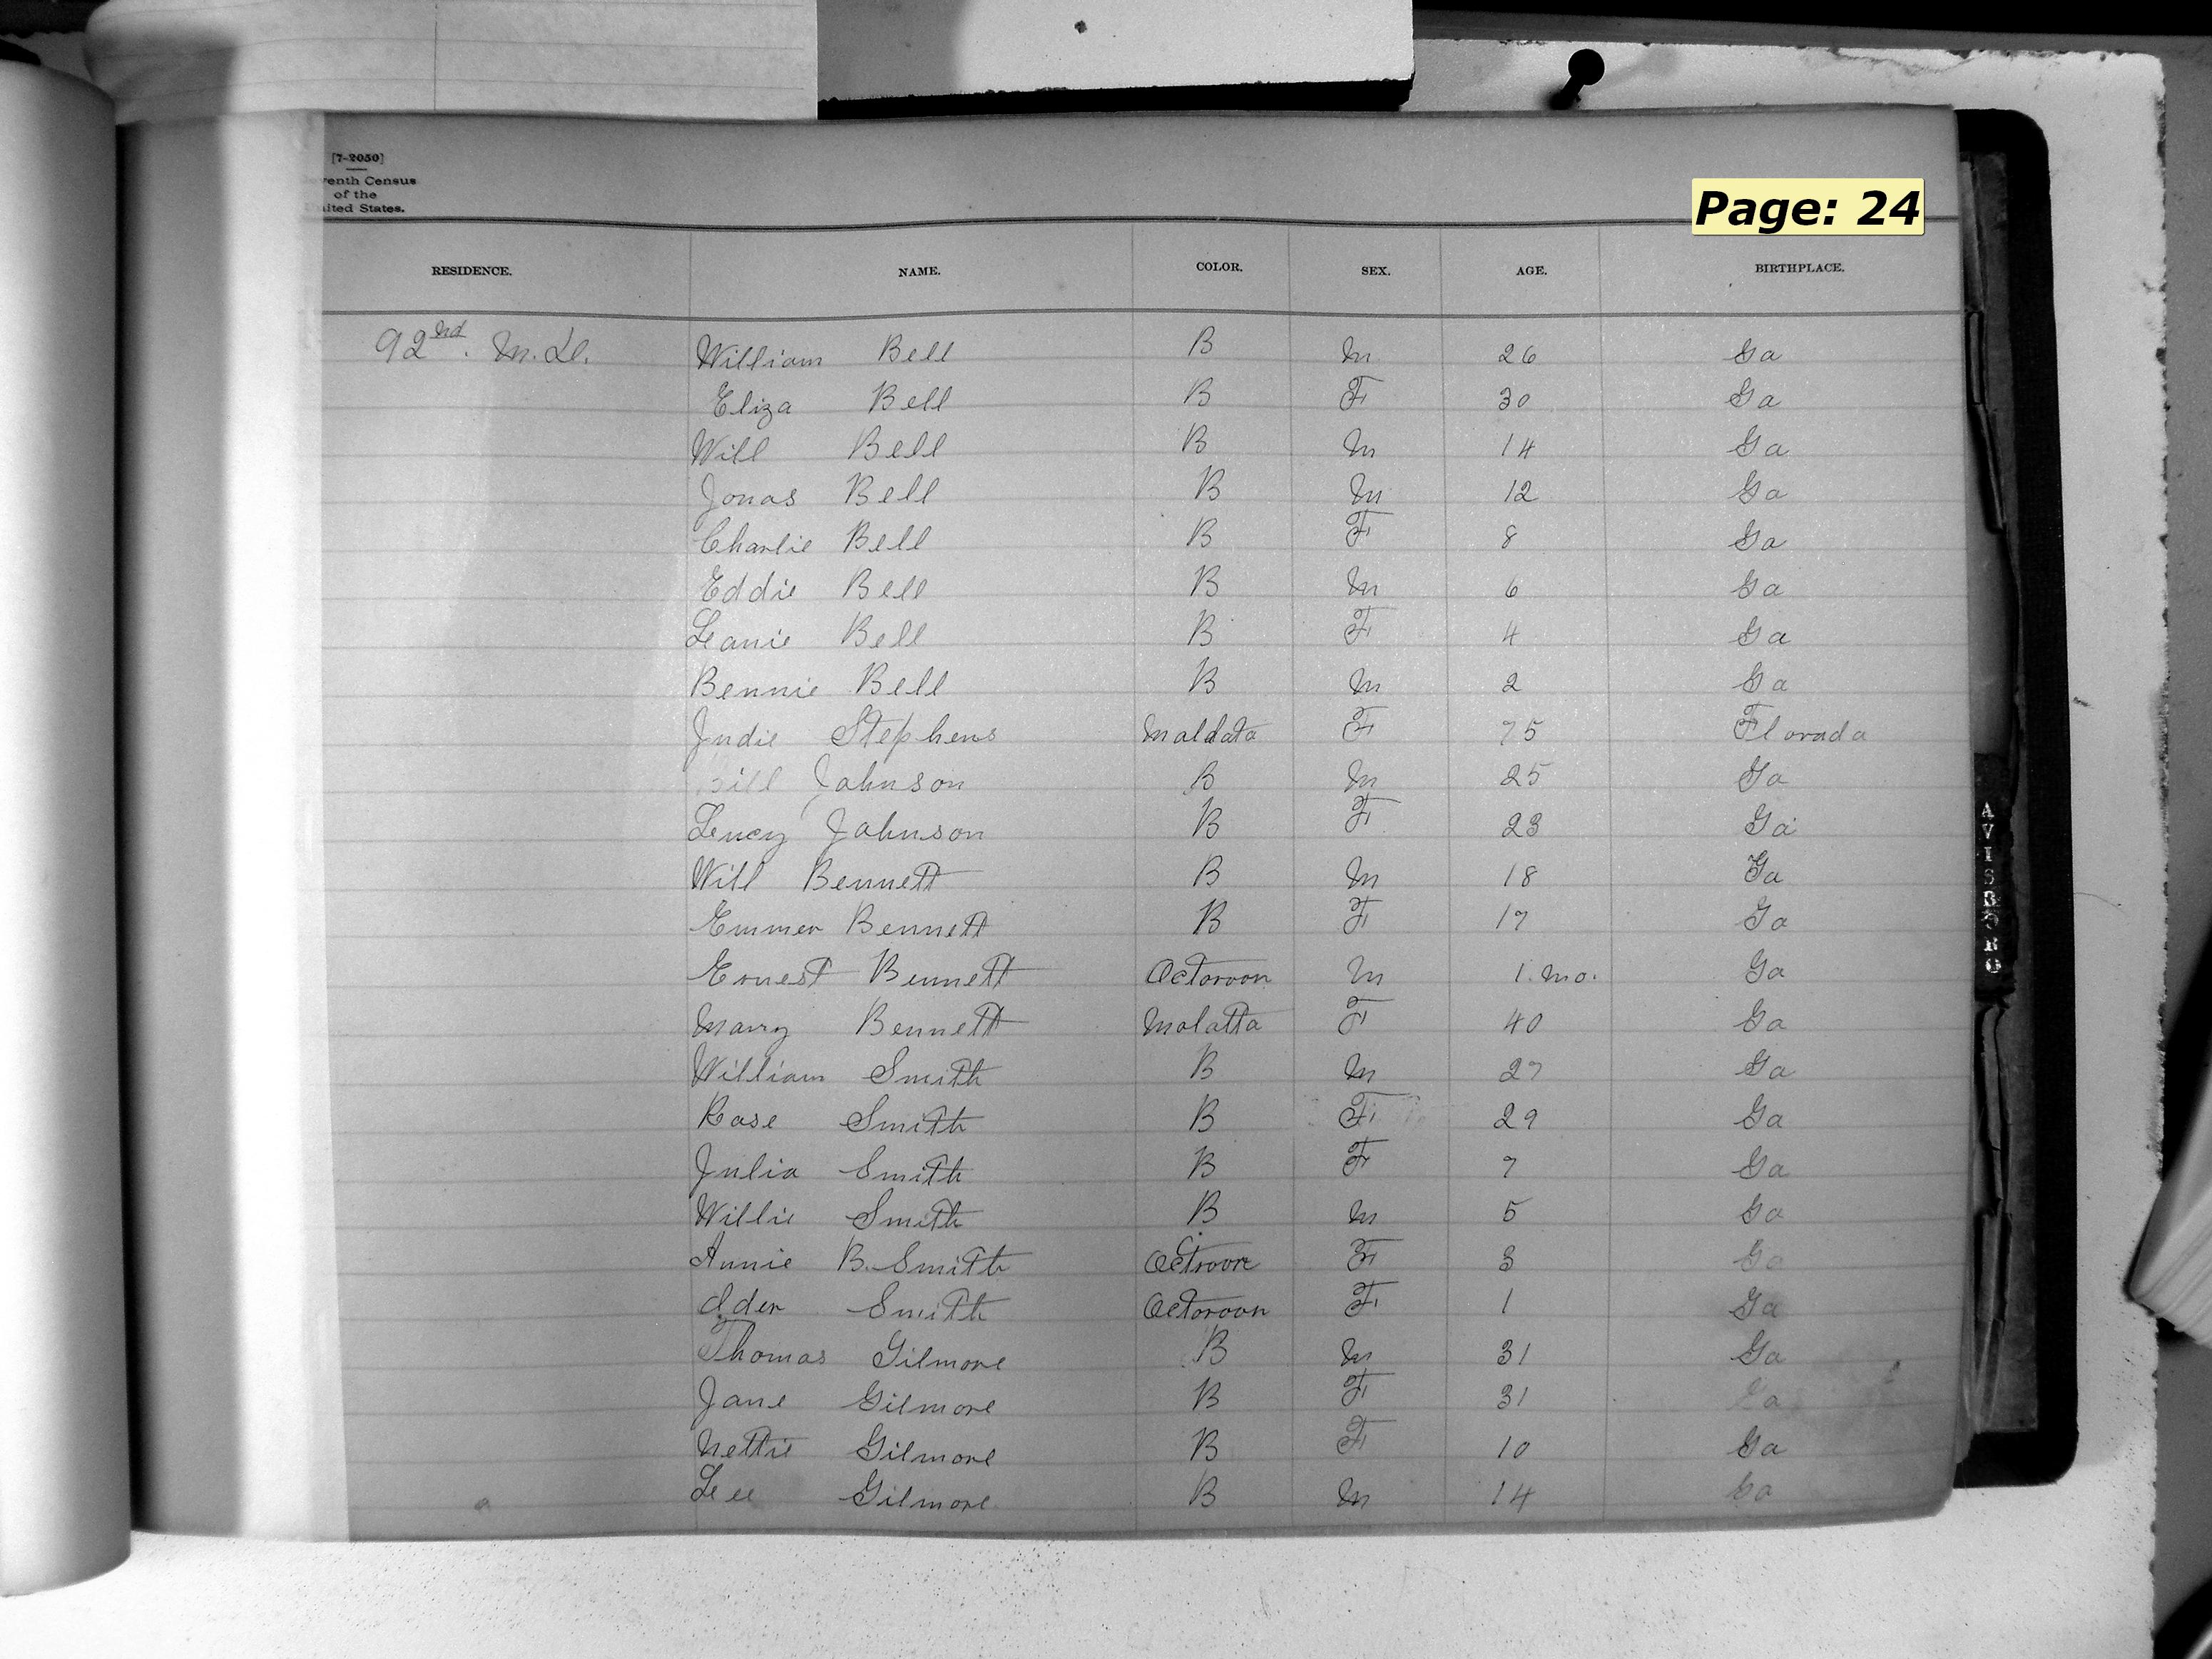 [7-2050]
venth Census
of the
ited States.
Page: 24
RESIDENCE. NAME. COLOR. SEX. AGE. BIRTHPLACE.
92nd. M. D. William Bell B M 26 Ga
Eliza Bell B F 30 Ga
Will Bell B M 14 Ga
Jonas Bell B M 12 Ga
Charlie Bell B F 8 Ga
Eddie Bell B M 6 Ga
Leanie Bell B F 4 Ga
Bennie Bell B M 2 Ga
Judie Stephens Maldata F 75 Florada
Johnson B M 25 Ga
Lucy Johnson B F 23 Ga
Will Bennett B M 18 Ga
Emmer Bennett B F 17 Ga
Ernest Bennett Octoroon M 1. mo. Ga
Mary Bennett Molatta F 40 Ga
William Smith B M 27 Ga
Rose Smith B F 29 Ga
Julia Smith B F 7 Ga
Willie Smith B M 5 Ga
Annie B. Smith F 3 Ga
Ider Smith Octoroon F 1 Ga
Thomas Gilmore B M 31 Ga
Jane Gilmore B F 31 Ga
Nettie Gilmore B F 10 Ga
Lee Gilmore B M 14 Ga
AVISBORO